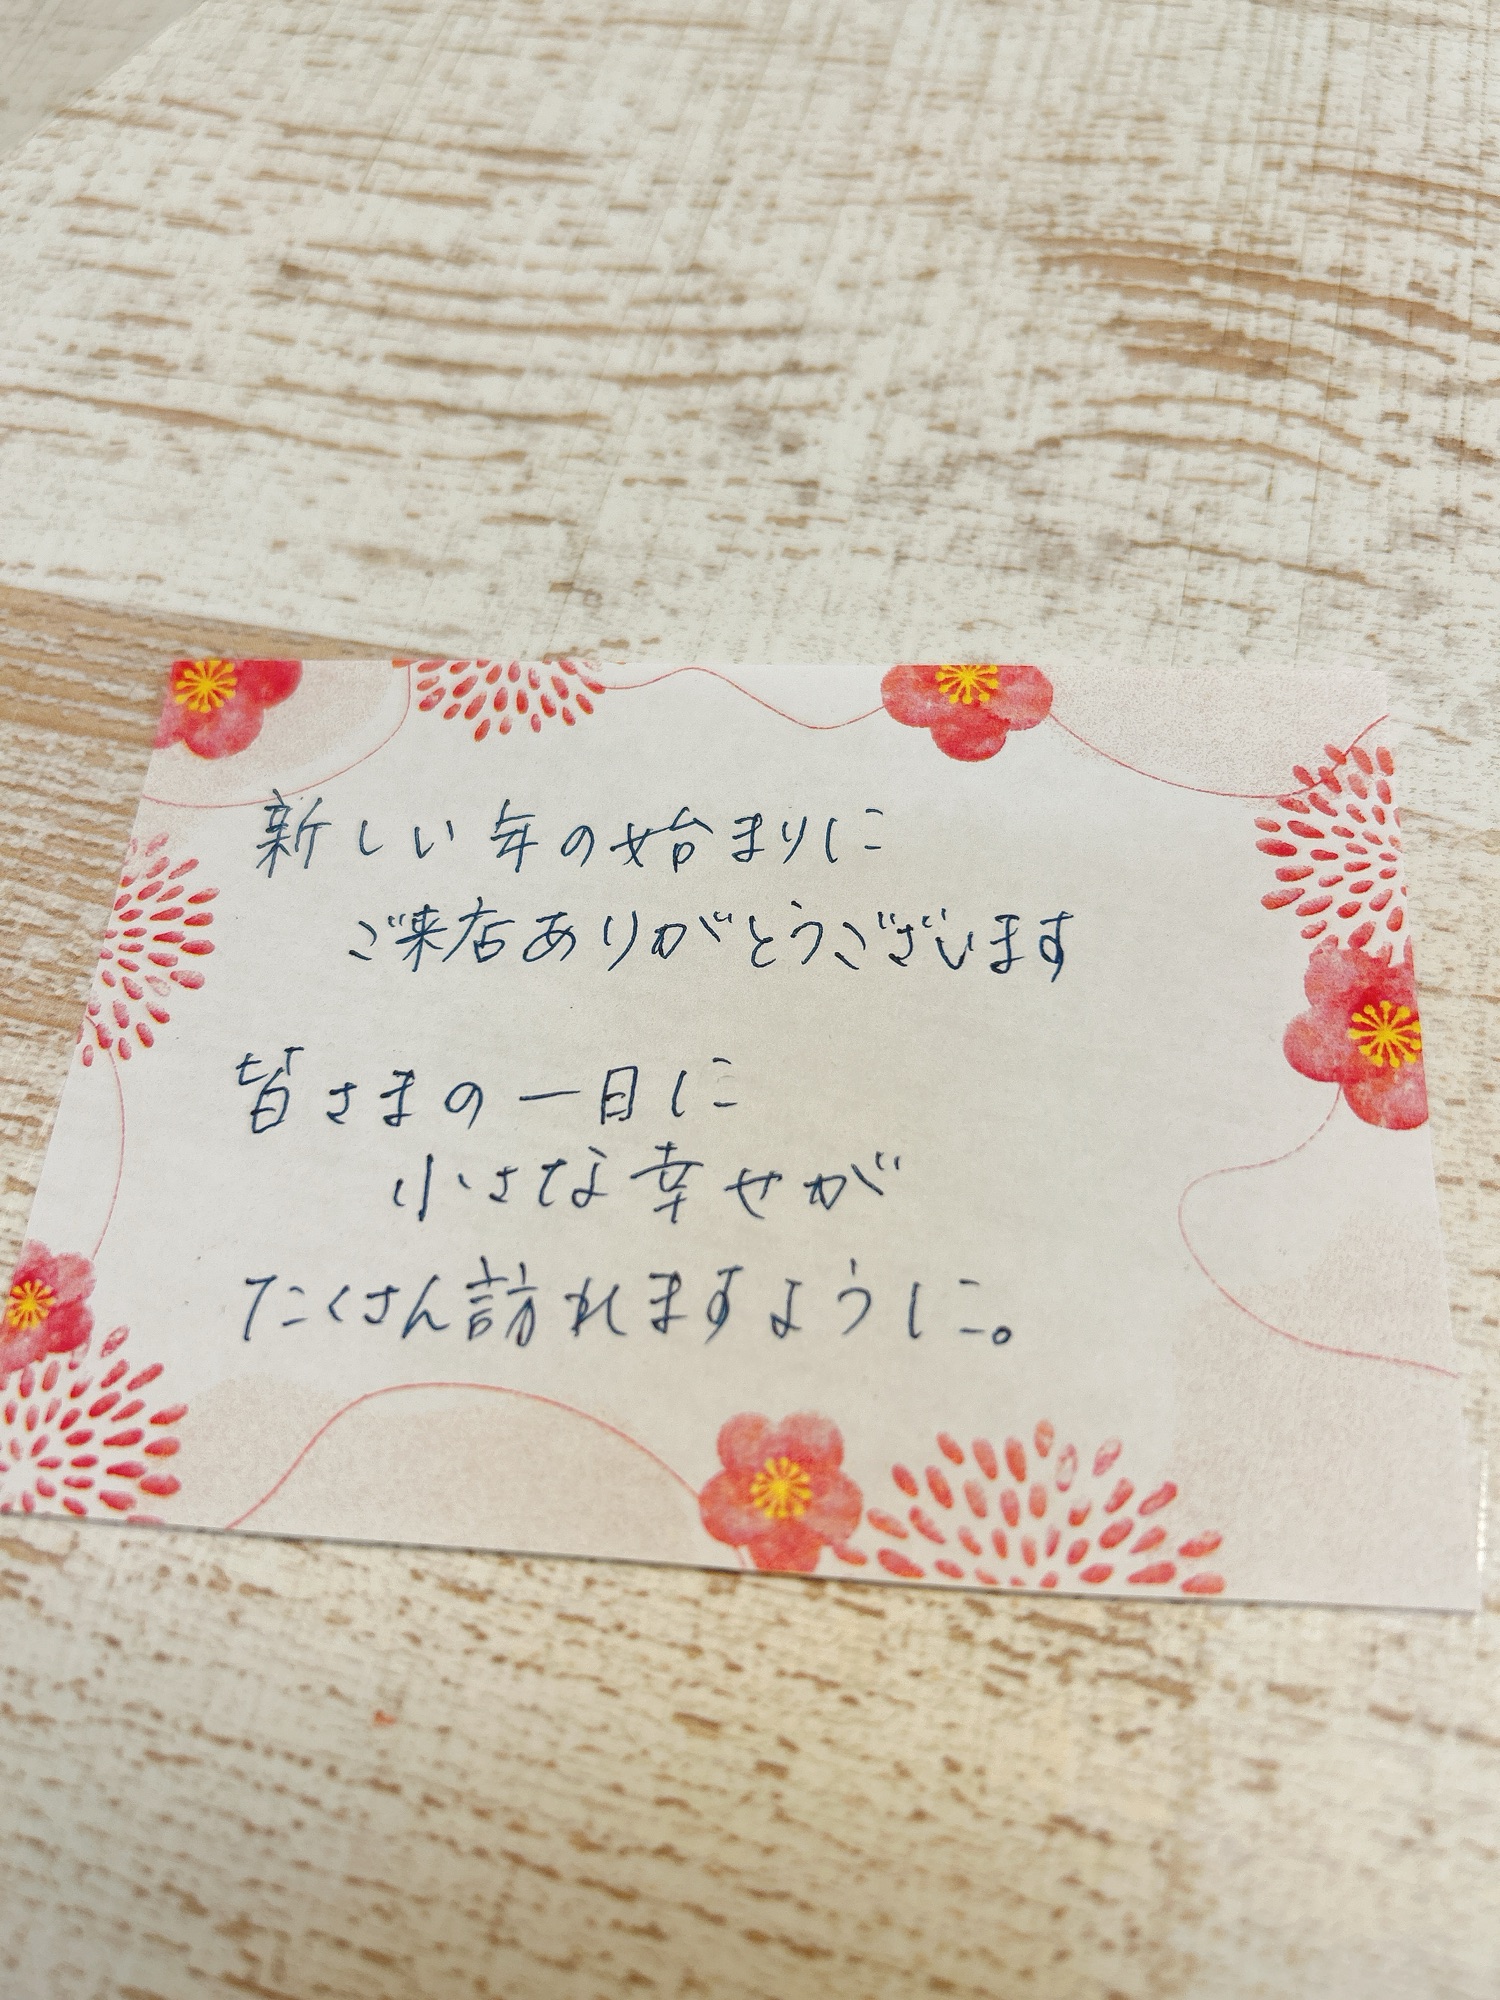 新しい年の始まりに
ご来店ありがとうございます
皆さまの一日に
小さな幸せが
たくさん訪れますように。